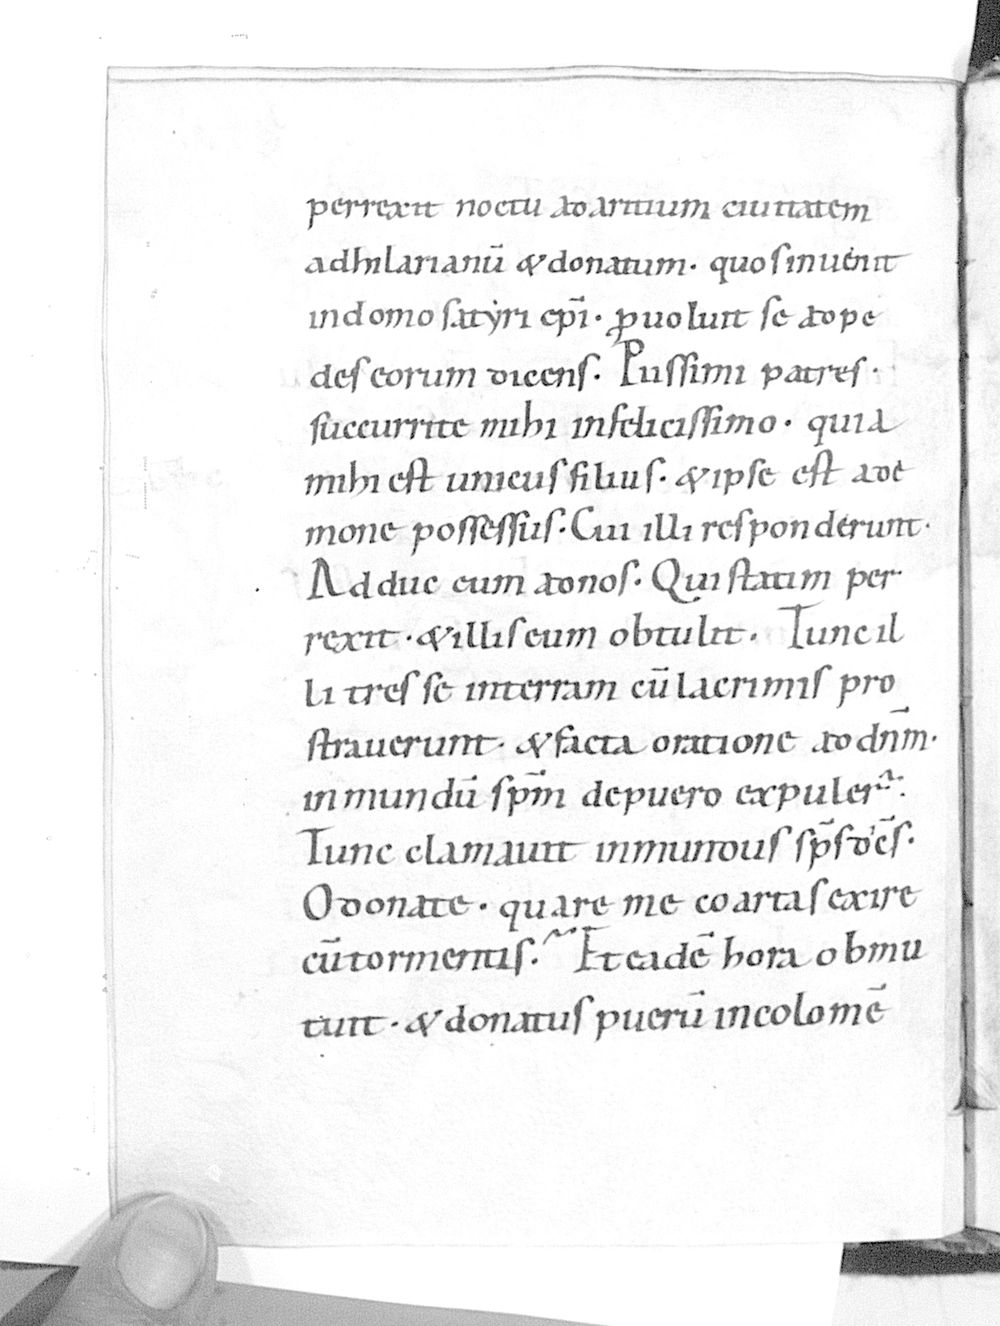 perrexit noctu ad aritium ciuitatem
ad hilarianū & donatum· quos inuenit
in domo satẏri epī· ꝓuoluit se ad pe
des eorum dicens· Piissimi patres·
succurrite mihi infelicissimo· quia
mihi est unicus filius· & ipse est a dę
mone possessus· Cui illi responderunt·
Adduc eum ad nos· Qui statim per
rexit· & illis eum obtulit· Tunc il
li tres se in terram cū lacrimis pro
strauerunt· & facta oratione ad dn̄m·
inmundū sp̄m de puero expuler̄·
Tunc clamauit inmundus sp̄s dicēs·
O donate· quare me coartas exire
cū tormentis· Et eadē hora obmu
tuit· & donatus puerū incolomē